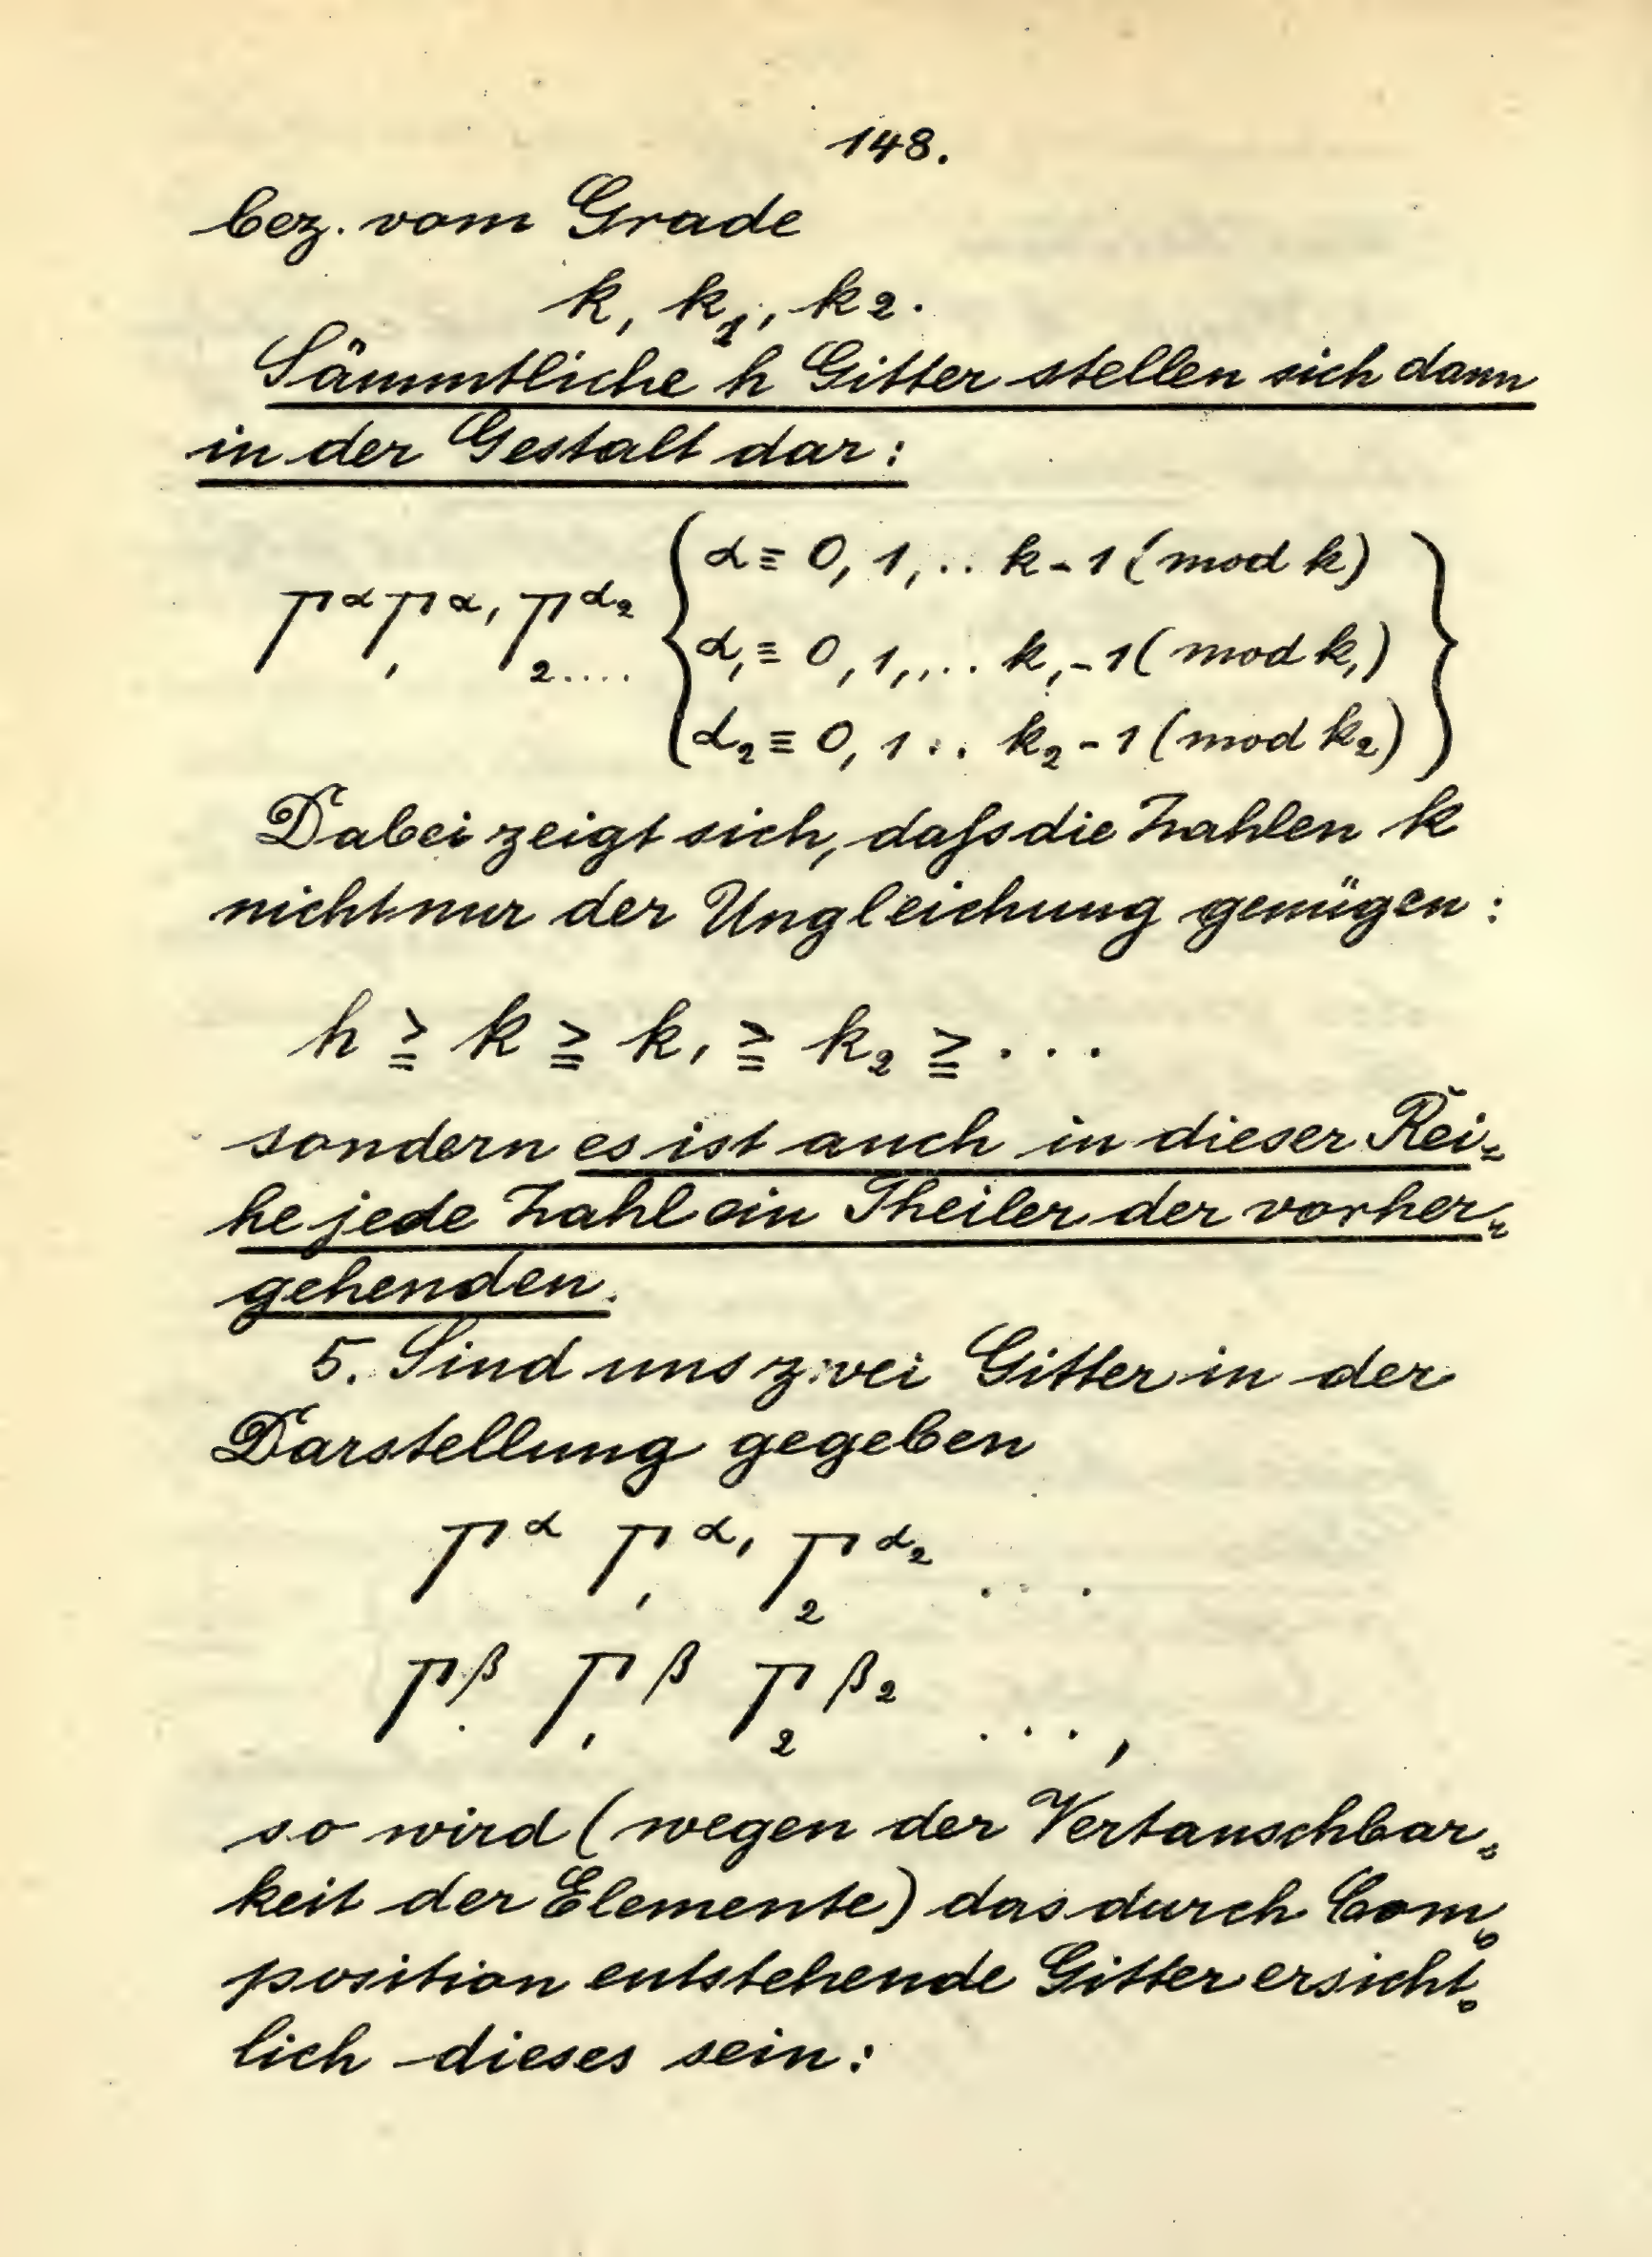 148.
bez. vom Grade
k, k₁, k₂.
Sämmtliche h Gitter stellen sich dann
in der Gestalt dar:
Γ^α Γ₁^α₁ Γ₂^α₂ .... { α ≡ 0, 1, .. k-1 (mod k)
α₁ ≡ 0, 1, ... k₁-1 (mod k₁)
α₂ ≡ 0, 1 .. k₂-1 (mod k₂) }
Dabei zeigt sich, dass die Zahlen k
nicht nur der Ungleichung genügen:
h ≧ k ≧ k₁ ≧ k₂ ≧ ...
sondern es ist auch in dieser Rei=
he jede Zahl ein Theiler der vorher=
gehenden.
5. Sind uns zwei Gitter in der
Darstellung gegeben
Γ^α Γ₁^α₁ Γ₂^α₂ ...
Γ^β Γ₁^β Γ₂^β₂ ...,
so wird (wegen der Vertauschbar=
keit der Elemente) das durch Com=
position entstehende Gitter ersicht=
lich dieses sein: